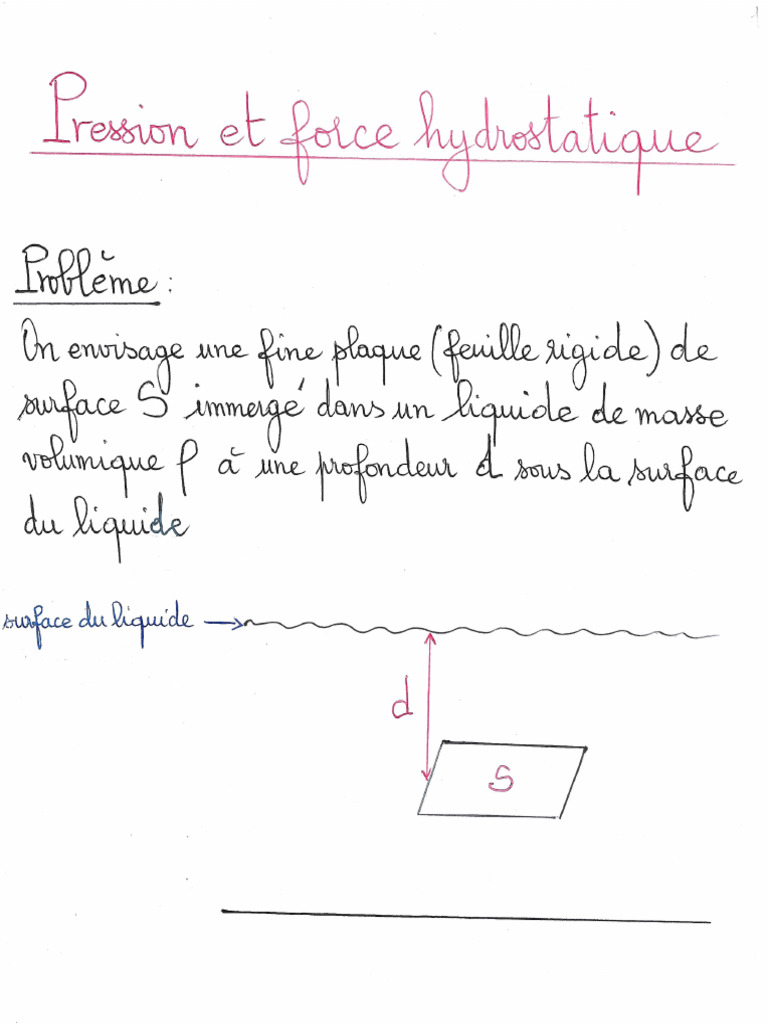 1
Pression et force hydrostatique
Problème :
On envisage une fine plaque (feuille rigide) de
surface S immergé dans un liquide de masse
volumique ρ à une profondeur d sous la surface
du liquide
surface du liquide →
d
S